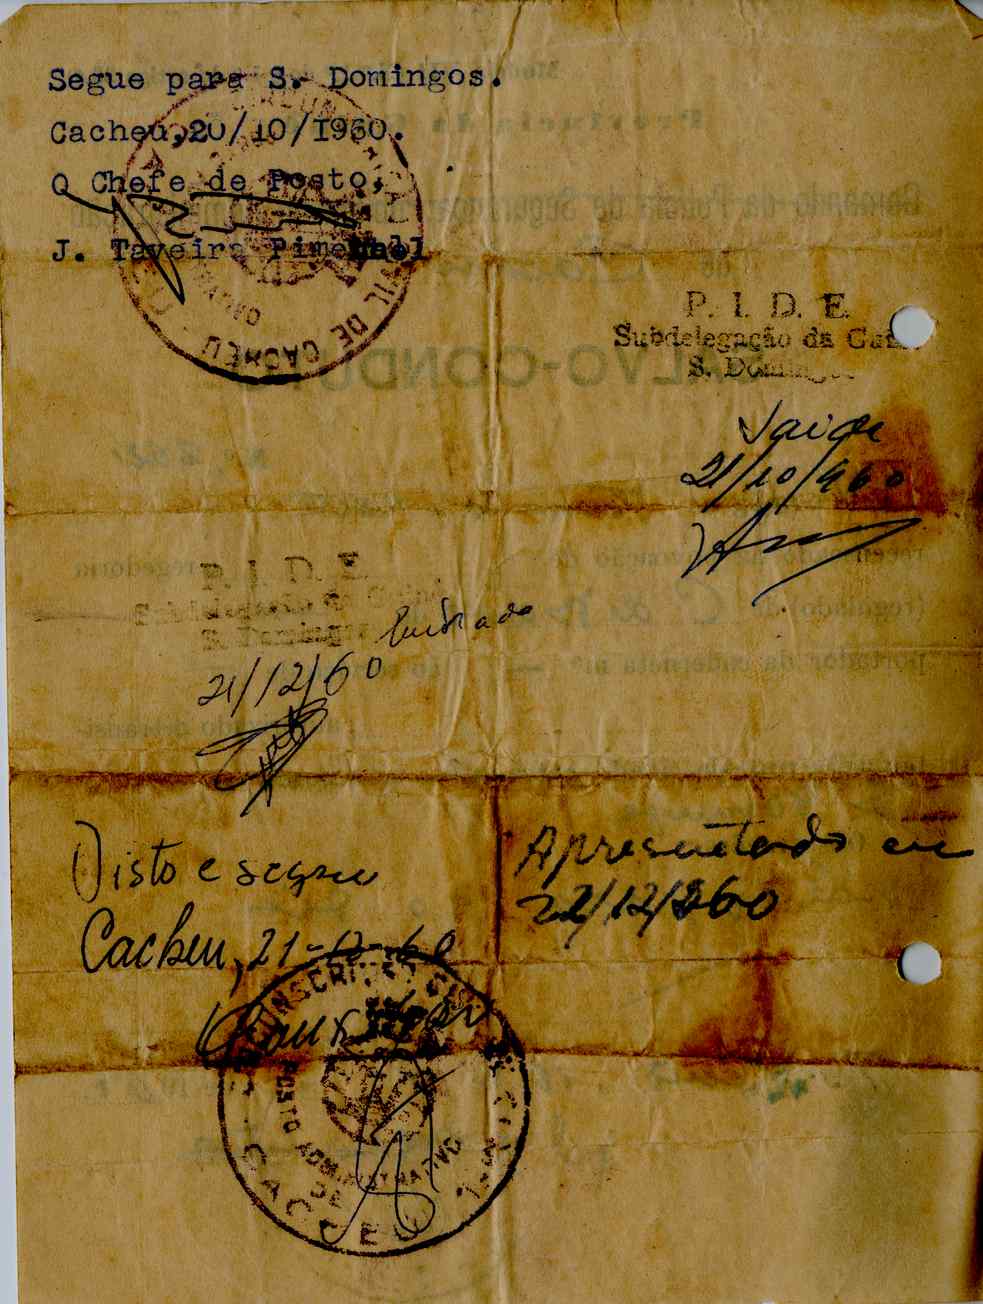 Segue para S. Domingos.
Cacheu,20/10/1960.
O Chefe de Posto,
J. Taveira Pimentel
CIVIL DE CACHEU
P. I. D. E.
Subdelegação da Guiné
S. Domingos
Saida
21/10/960
P. I. D. E.
Subdelegação da Guiné
S. Domingos
Entrada
21/12/60
Visto e segue
Cacheu, 21-12-60
Apresentado em
22/12/960
POSTO ADMINISTRATIVO
DE
CACHEU